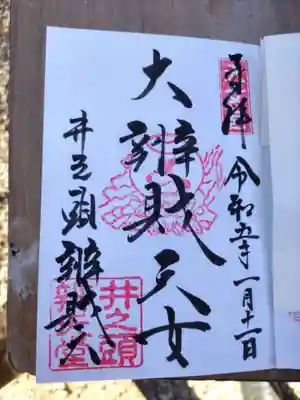 奉拝
令和五年一月十一日
大辨財天女
井之頭辨財天
井之頭
辨財天堂